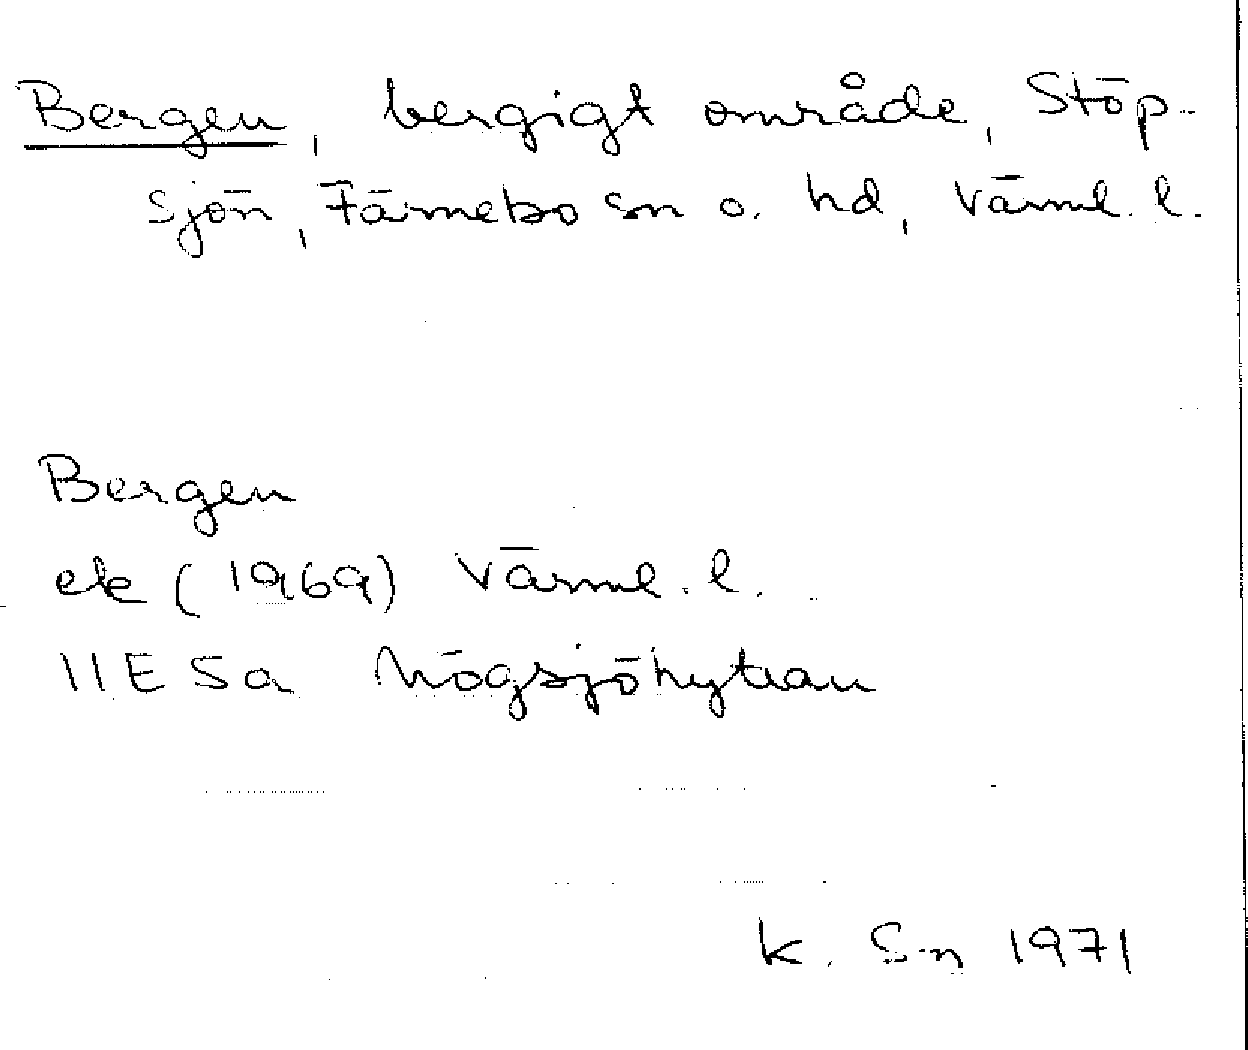 Bergen, bergigt område, Stöp-
sjön, Färnebo sn o. hd, Värml. l.
Bergen
ek (1969) Värml. l.
11E 5a Högsjöhyttan
K. S-n 1971